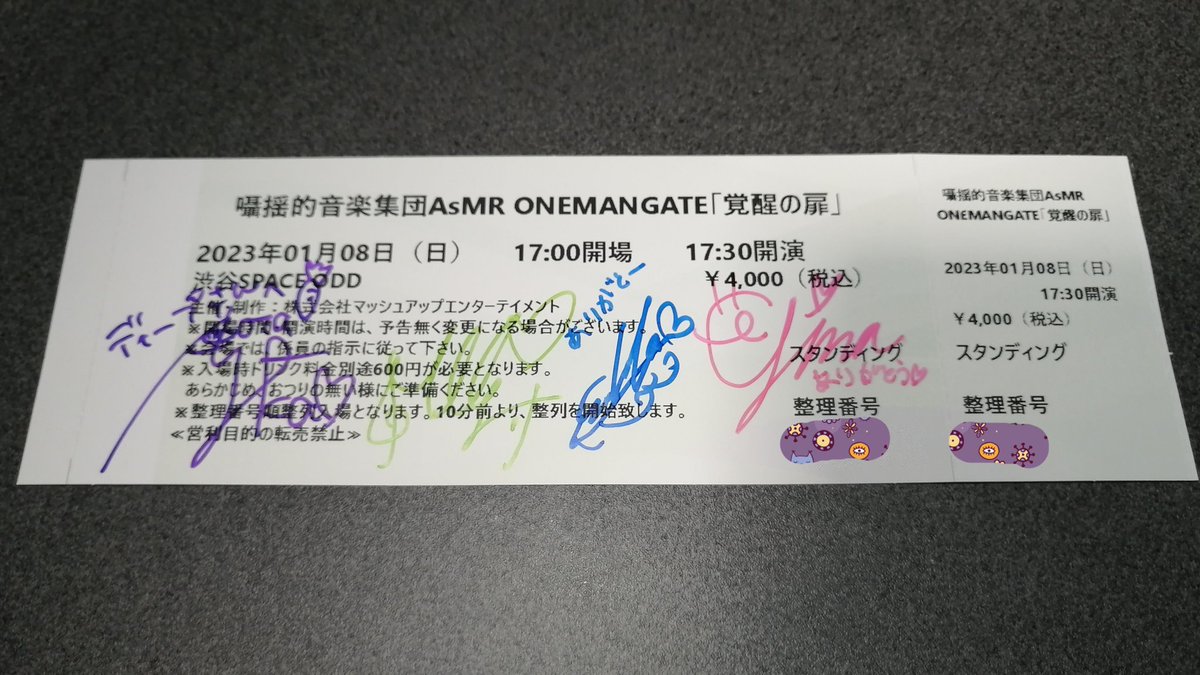 囁揺的音楽集団AsMR ONEMANGATE「覚醒の扉」
2023年01月08日（日） 17:00開場 17:30開演
渋谷SPACE ODD ￥4,000（税込）
主催・制作：株式会社マッシュアップエンターテイメント
※開場時間・開演時間は、予告無く変更になる場合がございます。
※会場では、係員の指示に従って下さい。
※入場時ドリンク料金別途600円が必要となります。
あらかじめ、おつりの無い様にご準備ください。
※整理番号順整列入場となります。10分前より、整列を開始致します。
≪営利目的の転売禁止≫
スタンディング
整理番号
ありがとー
ありがとう
囁揺的音楽集団AsMR
ONEMANGATE「覚醒の扉」
2023年01月08日（日）
17:30開演
￥4,000（税込）
スタンディング
整理番号